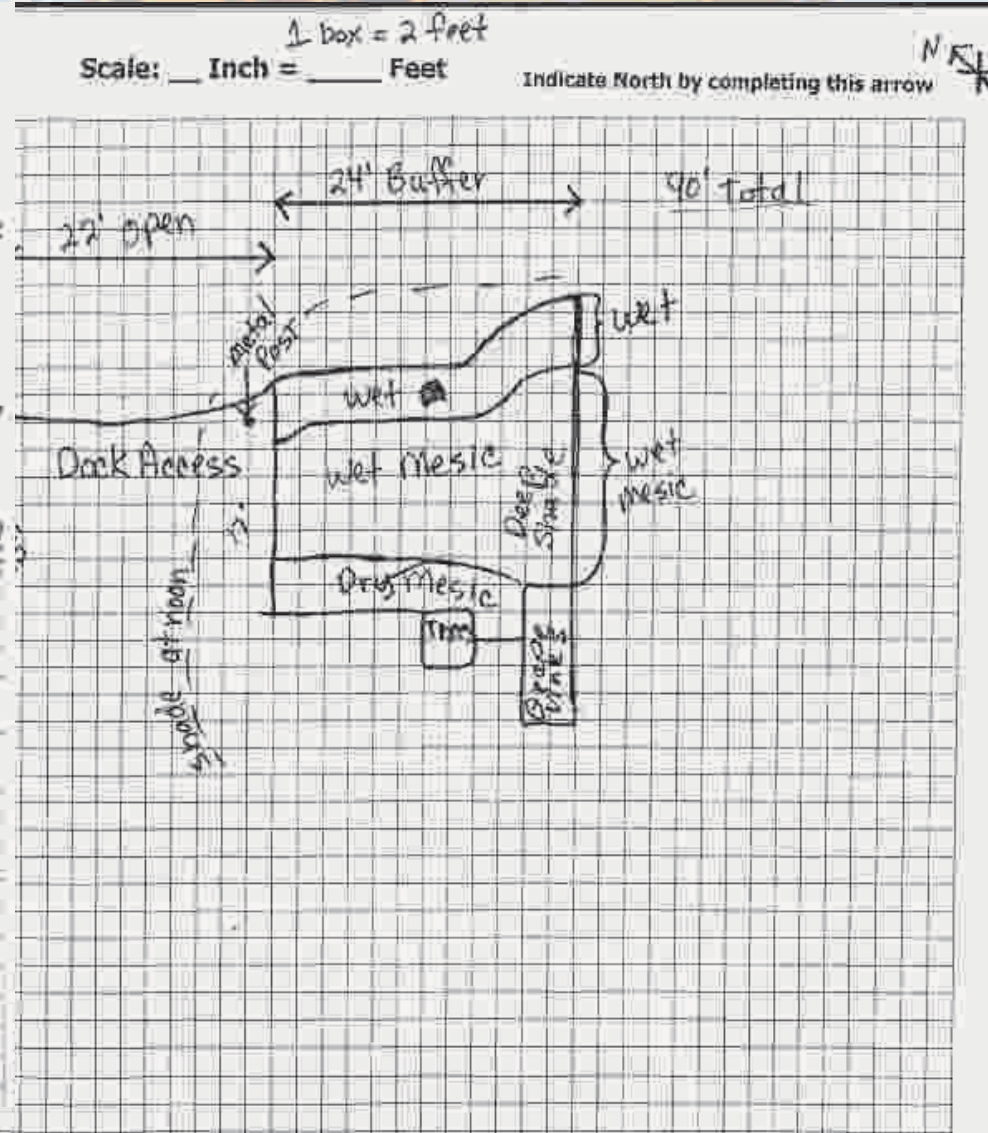 1 box = 2 feet
Scale: __ Inch = ____ Feet
N
Indicate North by completing this arrow
24' Buffer
90' total
22' open
Metal
Post
wet
wet
Dock Access
wet Mesic
wet
mesic
Deep
Shade
Dry Mesic
Tree
Grape
Vines
shade at noon